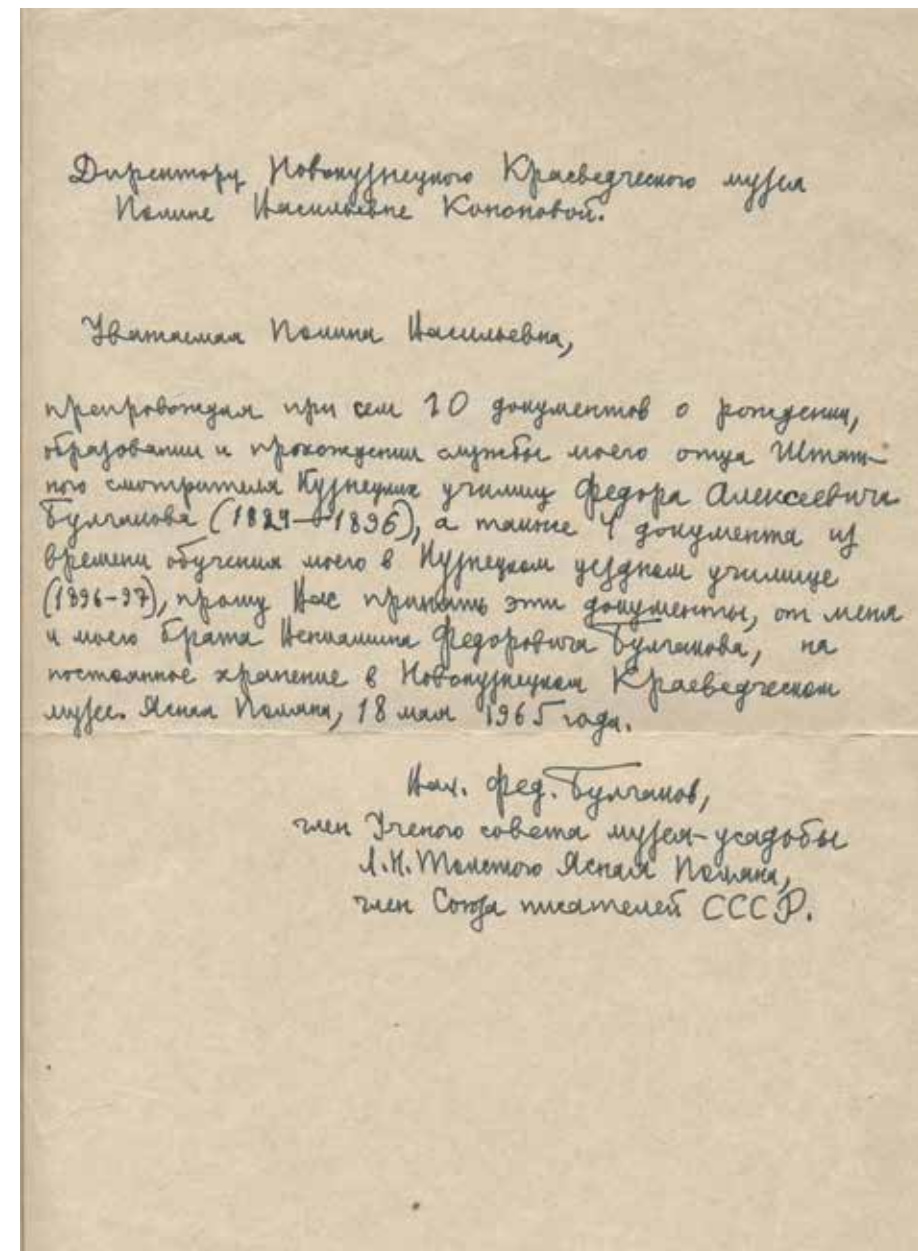 Директору Новокузнецкого Краеведческого музея
Полине Васильевне Кононовой.
Уважаемая Полина Васильевна,
препровождая при сем 10 документов о рождении,
образовании и прохождении службы моего отца Штат-
ного смотрителя Кузнецких училищ Федора Алексеевича
Булгакова (1824–1896), а также 4 документа из
времени обучения моего в Кузнецком уездном училище
(1896-97), прошу Вас принять эти документы, от меня
и моего брата Вениамина Федоровича Булгакова, на
постоянное хранение в Новокузнецком Краеведческом
музее. Ясная Поляна, 18 мая 1965 года.
Вал. Фед. Булгаков,
член Ученого совета музея-усадьбы
Л.Н. Толстого Ясная Поляна,
член Союза писателей СССР.